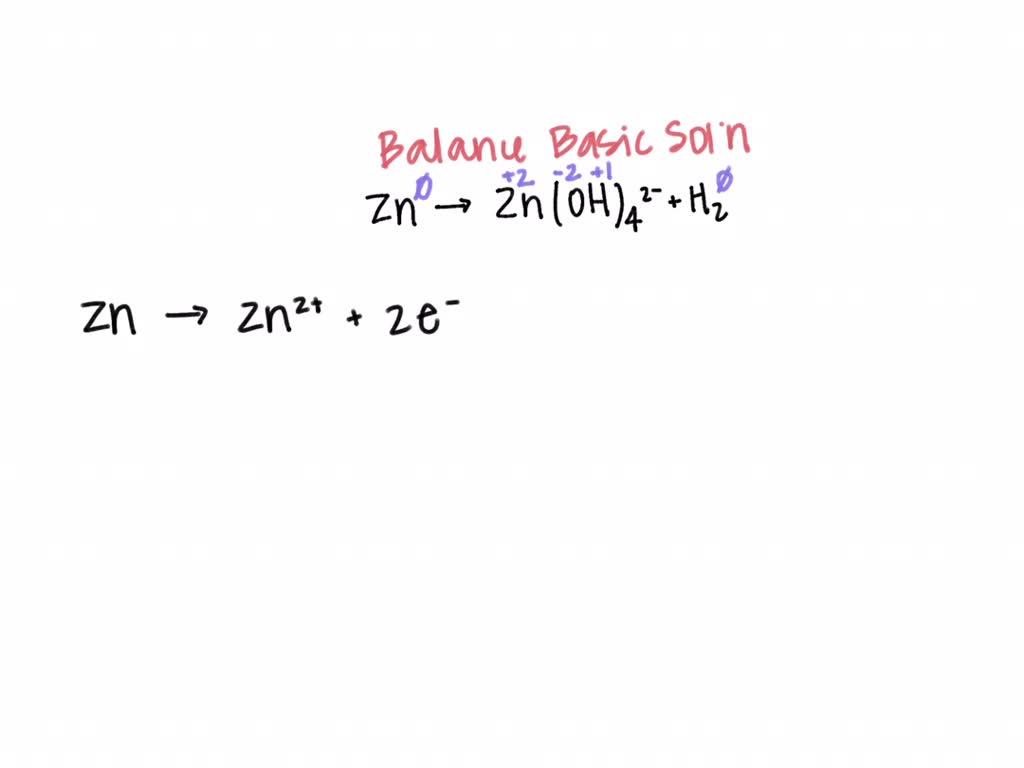 Balance Basic Sol'n
+2 -2 +1
Zn⁰ → Zn(OH)₄²⁻ + H₂⁰
Zn → Zn²⁺ + 2e⁻